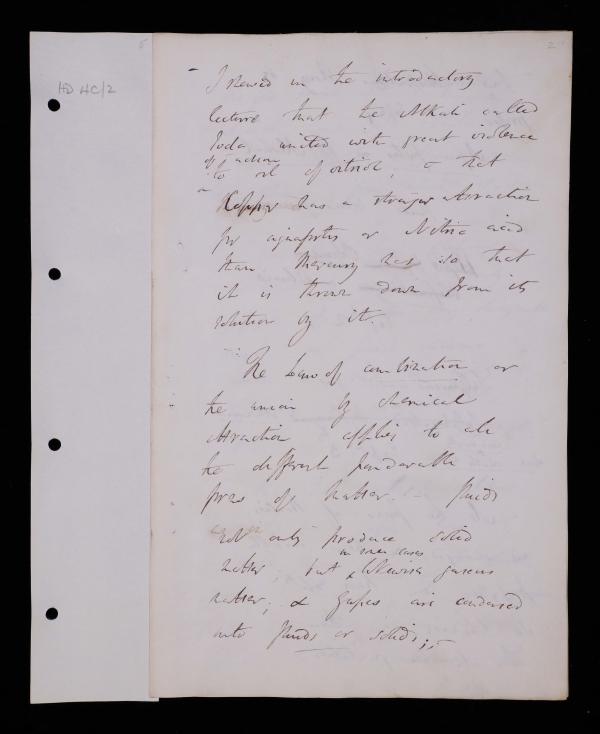 HD 4C/2
5
2
I shewed in the introductory
lecture that the Alkali called
Soda united with great violence
of action
to oil of vitriol, & that
Copper has a stronger attraction
for aquafortis or Nitric acid
than Mercury has so that
it is thrown down from its
solution by it.
The Law of combination or
the union by chemical
attraction applies to all
the different ponderable
forms of matter. - fluids
not only produce solid
in some cases
matter, but likewise gaseous
matter; & gases are condensed
into fluids or solids;-